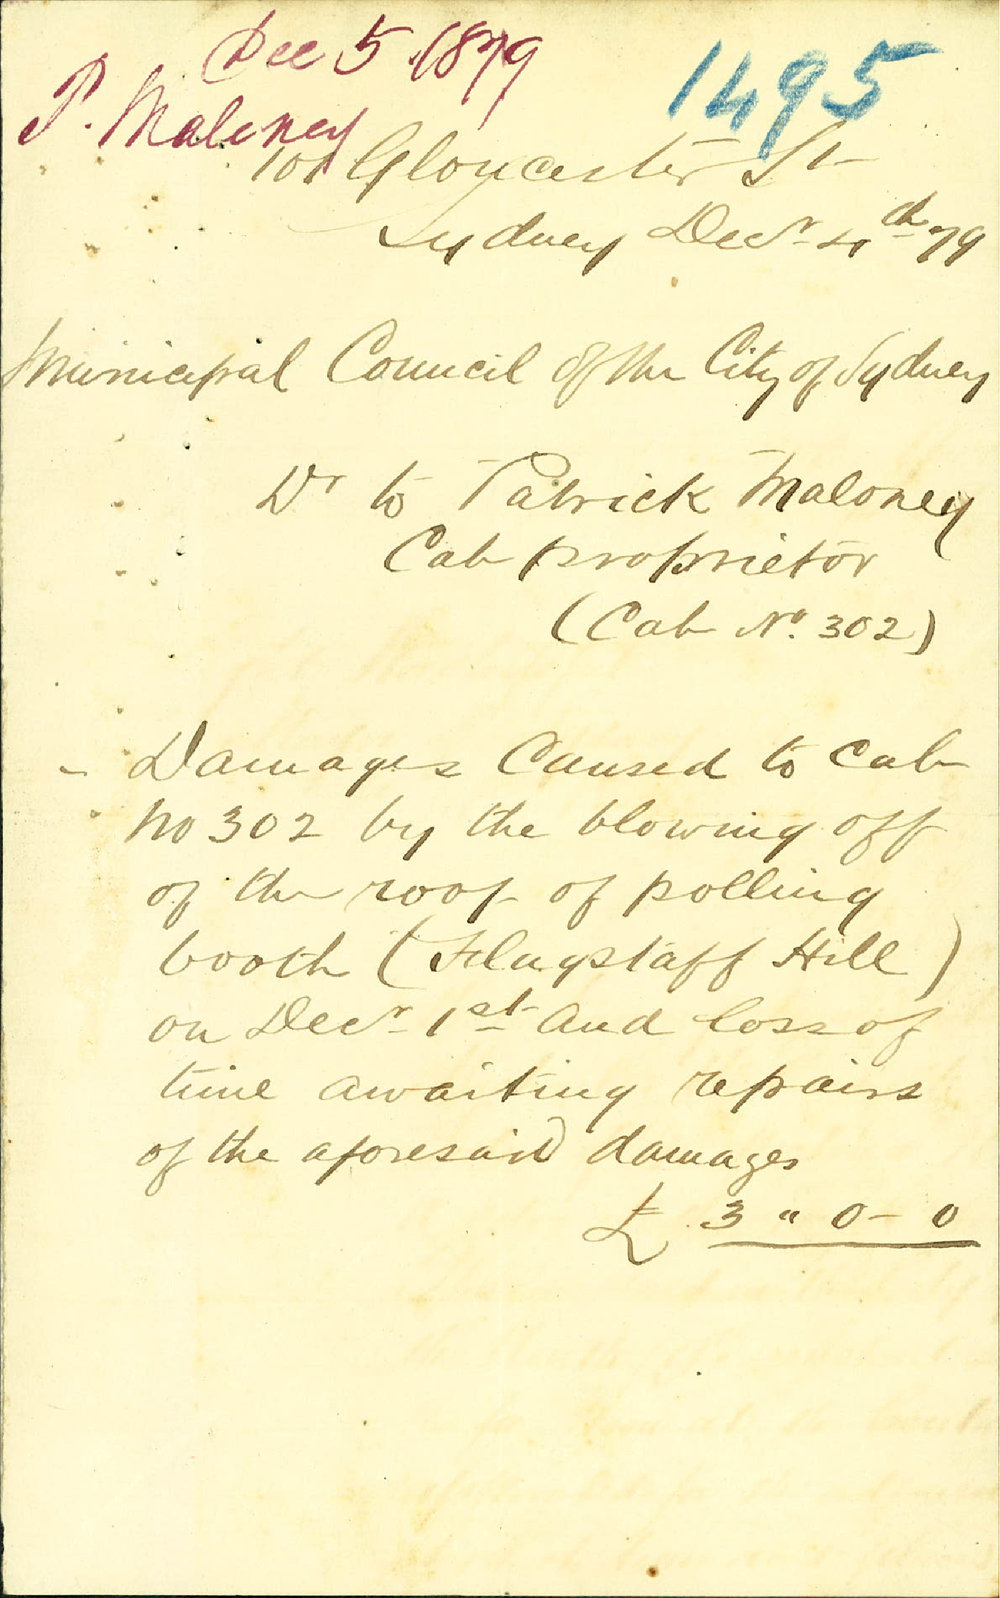 Dec 5 1879
P. Maloney
1495
101 Gloucester St
Sydney Decr 4th 79
Municipal Council of the City of Sydney
Dr to Patrick Maloney
Cab proprietor
(Cab No. 302)
- Damages Caused to Cab
No 302 by the blowing off
of the roof of polling
booth (Flagstaff Hill)
on Decr 1st and loss of
time awaiting repairs
of the aforesaid damages
£ 3 " 0 - 0